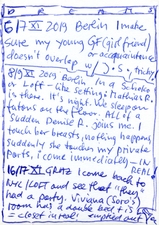 DREAMS
6/7 XI 2019 Berlin I make
sure my young GF (girlfriend)
doesn't overlap w/
or acquaintance
J.S., tricky
8/9 XI 2019 Berlin In a Schiele
or Loft-like Setting, Mathias R.
is there. It's night. We sleep on
futons on the floor. All of a
sudden Denise R. joins me. I
touch her breasts, nothing happens
suddenly she touches my private
parts, I come immediately — IN
REAL!
16/17 XI GRAZ I come back to
NYC / Loft and see that they
had a party. Vivyana (Soro's)
room has a double bed & is
= closet in real! emptied out